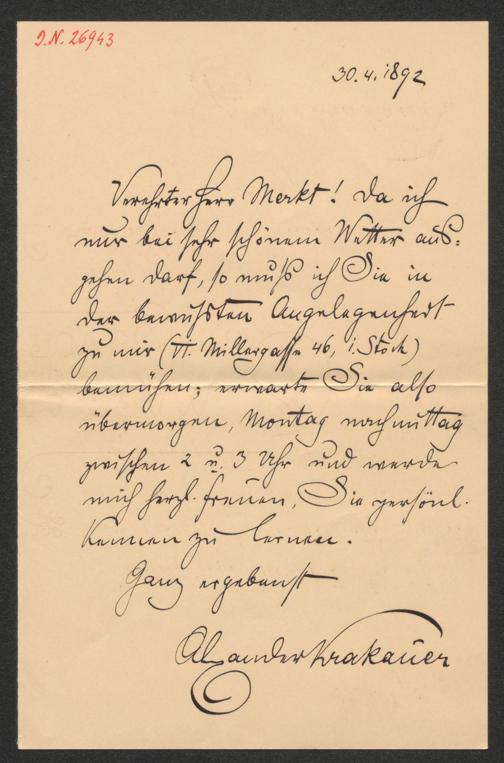 I.N. 26943
30.4.1892
Verehrter Herr Merkt! Da ich
nur bei sehr schönem Wetter aus=
gehen darf, so muß ich Sie in
der bewußten Angelegenheit
zu mir (VI. Millergasse 46, 1. Stock)
bemühen; erwarte Sie also
übermorgen, Montag nachmittag
zwischen 2 u. 3 Uhr und werde
mich herzl. freuen, Sie persönl.
kennen zu lernen.
Ganz ergebenst
Alexander Krakauer